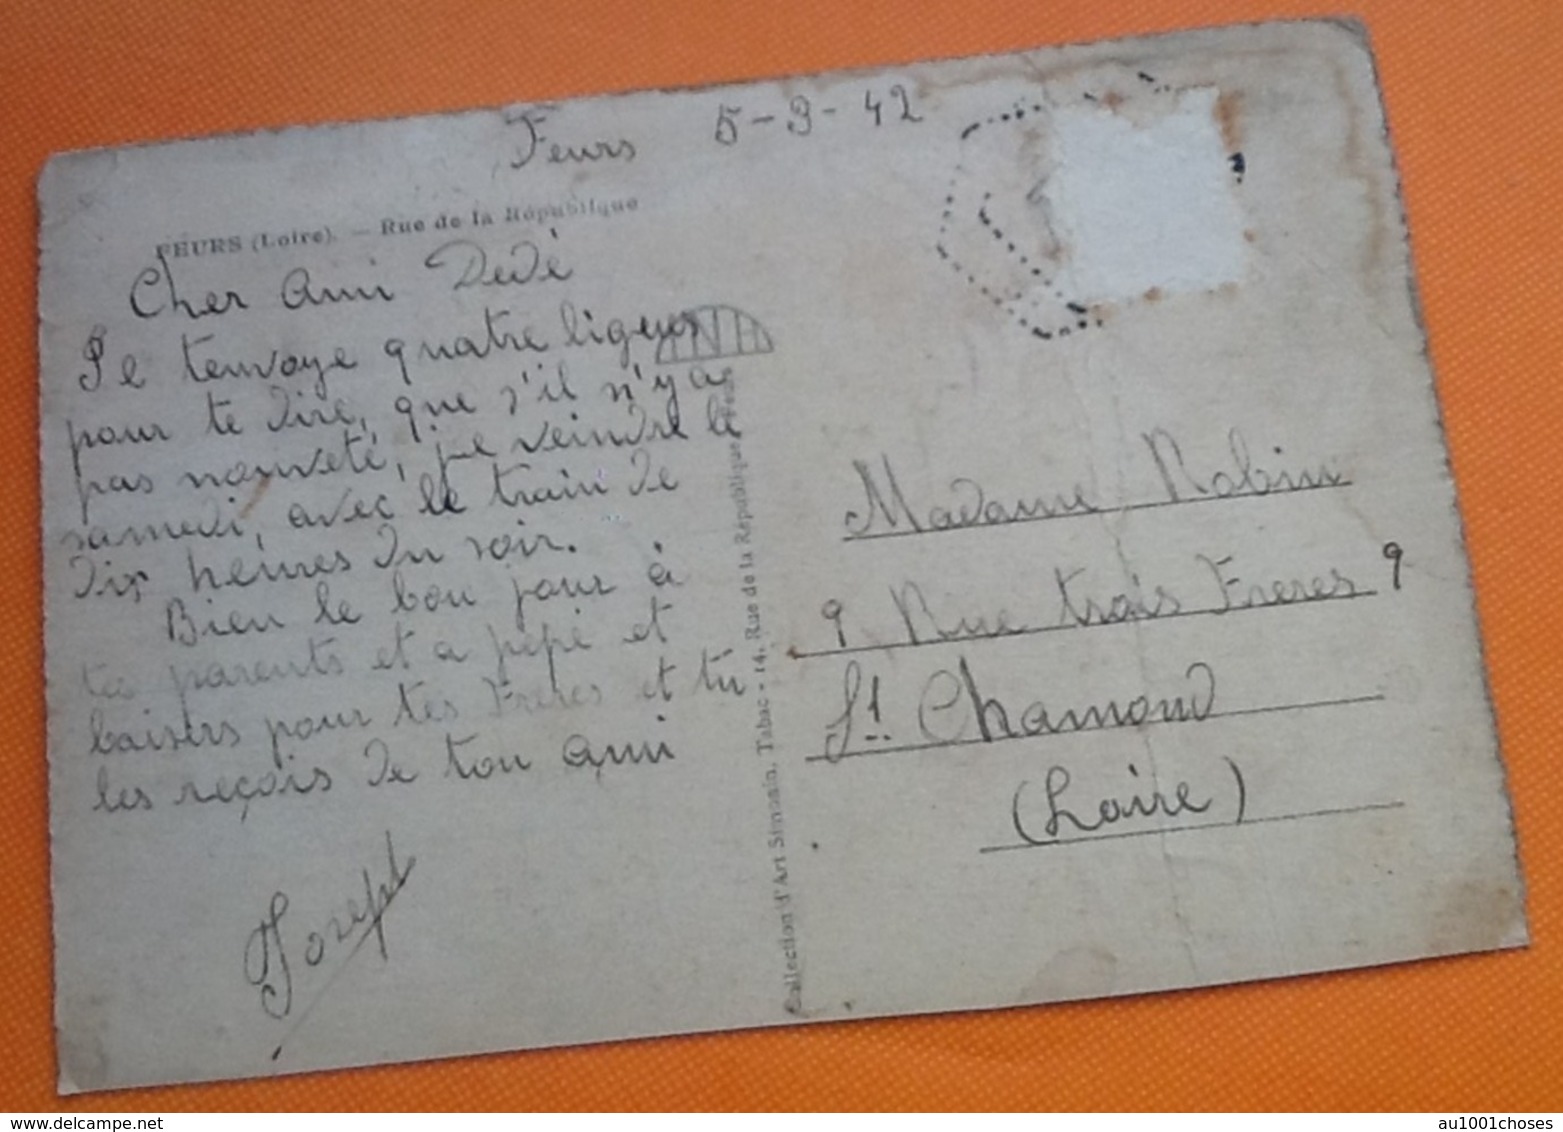 Feurs 5-3-42
FEURS (Loire). — Rue de la République
Cher Ami Dedé
Je tenvoye quatre lignes
pour te dire, que s'il n'y a
pas nouveté, je veindre le
samedi, avec le train de
dix heures du soir.
Bien le bon jour à
tes parents et a pépé et
baisers pour tes Freres et tu
les reçois de ton ami
Joseph
Collection d'Art Simonin, Tabac - 14, Rue de la République, Feurs
Madame Robin
9 Rue trois Freres 9
St Chamond
(Loire)
au1001choses
delcampe.net